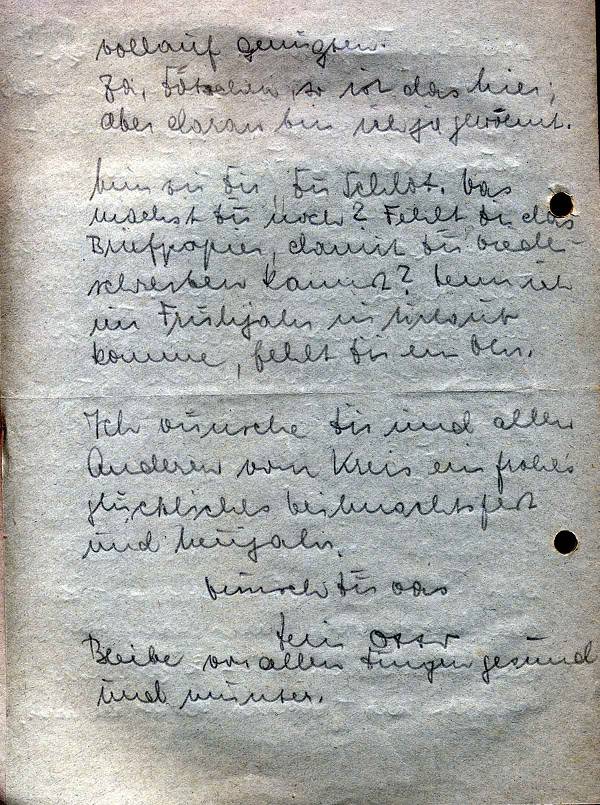 vollauf genügten.
Ja, so ist das hier,
aber daran bin ich ja gewöhnt.
Nun zu Dir, Du Was
machst Du noch? Fehlt Dir das
Briefpapier, damit Du wieder
schreiben kannst? Wenn ich
im Frühjahr in Urlaub
komme, fehlt Dir ein Ohr.
Ich wünsche Dir und allen
Anderen vom Kreis ein frohes
glückliches Weihnachtsfest
und Neujahr.
Wünsch Dir was
Dein
Bleibe vor allen Dingen gesund
und munter.